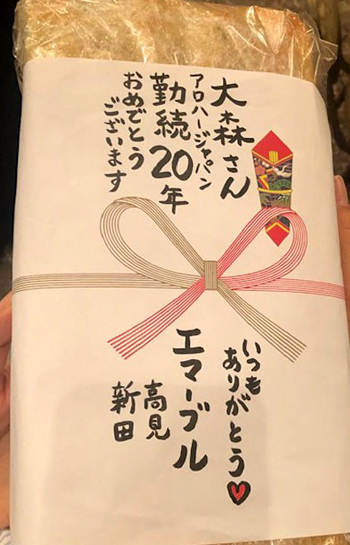 大森さん
アロハージャパン
勤続20年
おめでとう
ございます
いつも
ありがとう♥
エマーブル
高見
新田